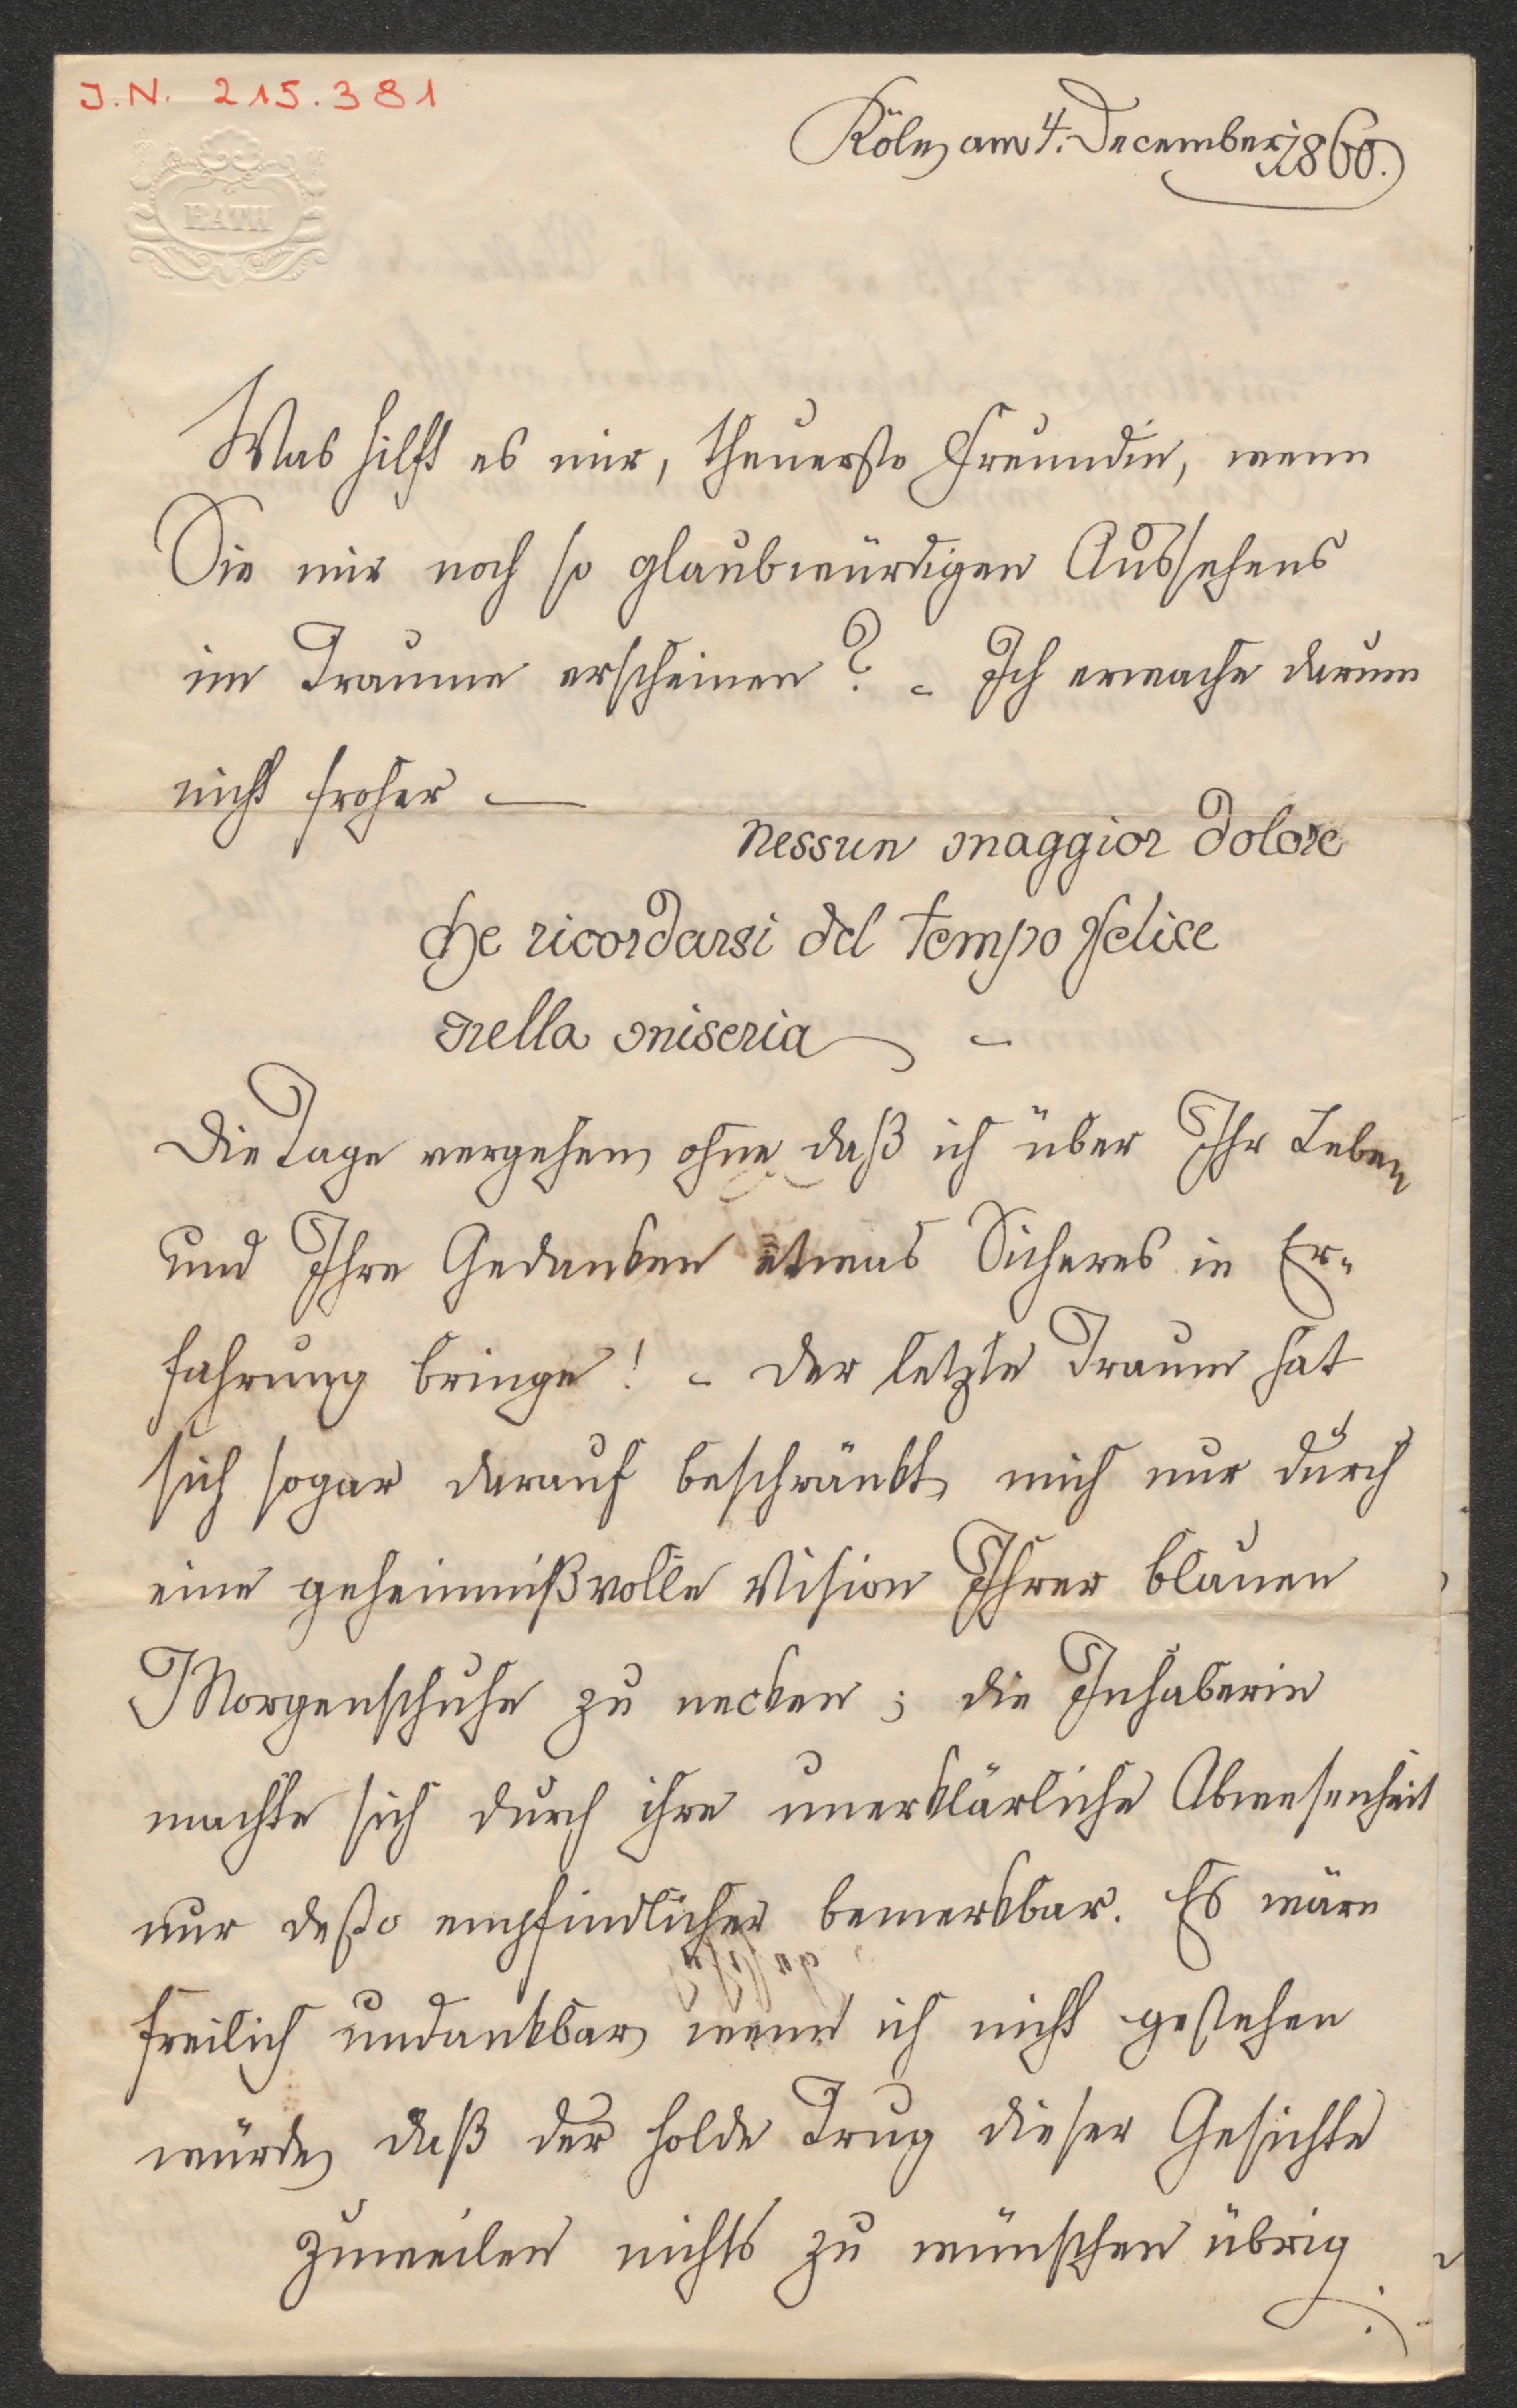 J.N. 215.381
Köln, am 4. December 1860.
BATH
Was hilft es mir, theuerste Freundin, wenn
Sie mir noch so glaubwürdigen Aussehens
im Traume erscheinen? – Ich erwache darum
nicht froher —
Nessun maggior dolore
che ricordarsi del tempo felice
nella miseria –
Die Tage vergehen, ohne daß ich über Ihr Leben
und Ihre Gedanken etwas Sicheres in Er-
fahrung bringe! – Der letzte Traum hat
sich sogar darauf beschränkt, mich nur durch
eine geheimnißvolle Vision Ihrer blauen
Morgenschuhe zu necken; die Inhaberin
machte sich durch ihre unerklärliche Abwesenheit
nur desto empfindlicher bemerkbar. Es wäre
freilich undankbar, wenn ich nicht gestehen
würde, daß der holde Trug dieser Gesichte
zuweilen nichts zu wünschen übrig